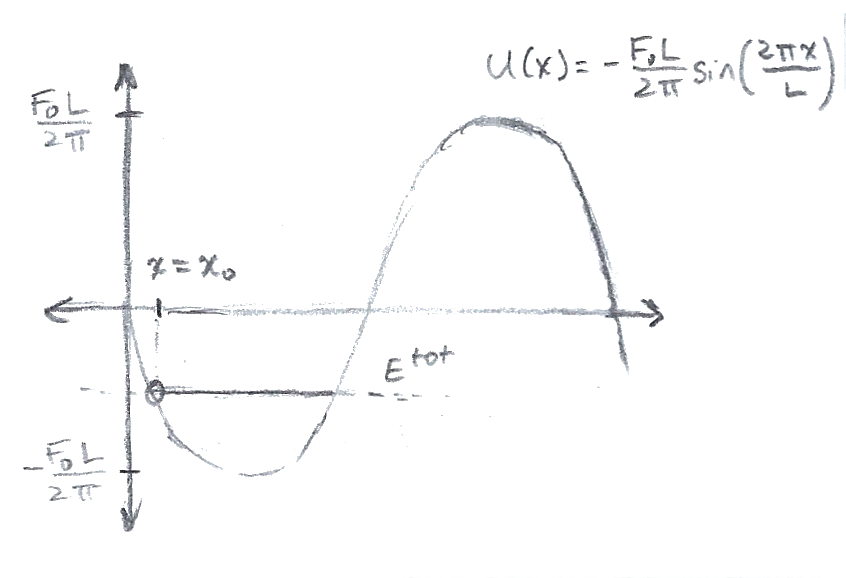 U(x) = - F₀L/2π sin(2πx/L)
F₀L/2π
x = x₀
E^tot
-F₀L/2π